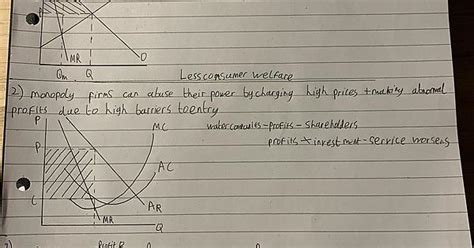 MR
D
Qm
Q
Less consumer welfare
2) monopoly firms can abuse their power by charging high prices + making abnormal
profits due to high barriers to entry
P
MC
water companies - profits - shareholders
P
AC
profits → investment - service worsens
C
AR
MR
Q
Profit